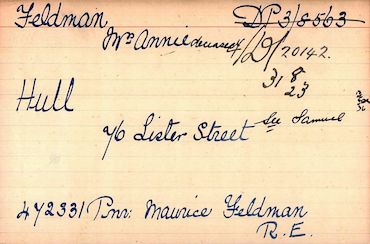 Feldman DP3/8563
Mrs Annie deceased 4/D/20142.
318
23
Hull
7/0 Lister Street See Samuel
472331 Pnr: Maurice Feldman
R.E.